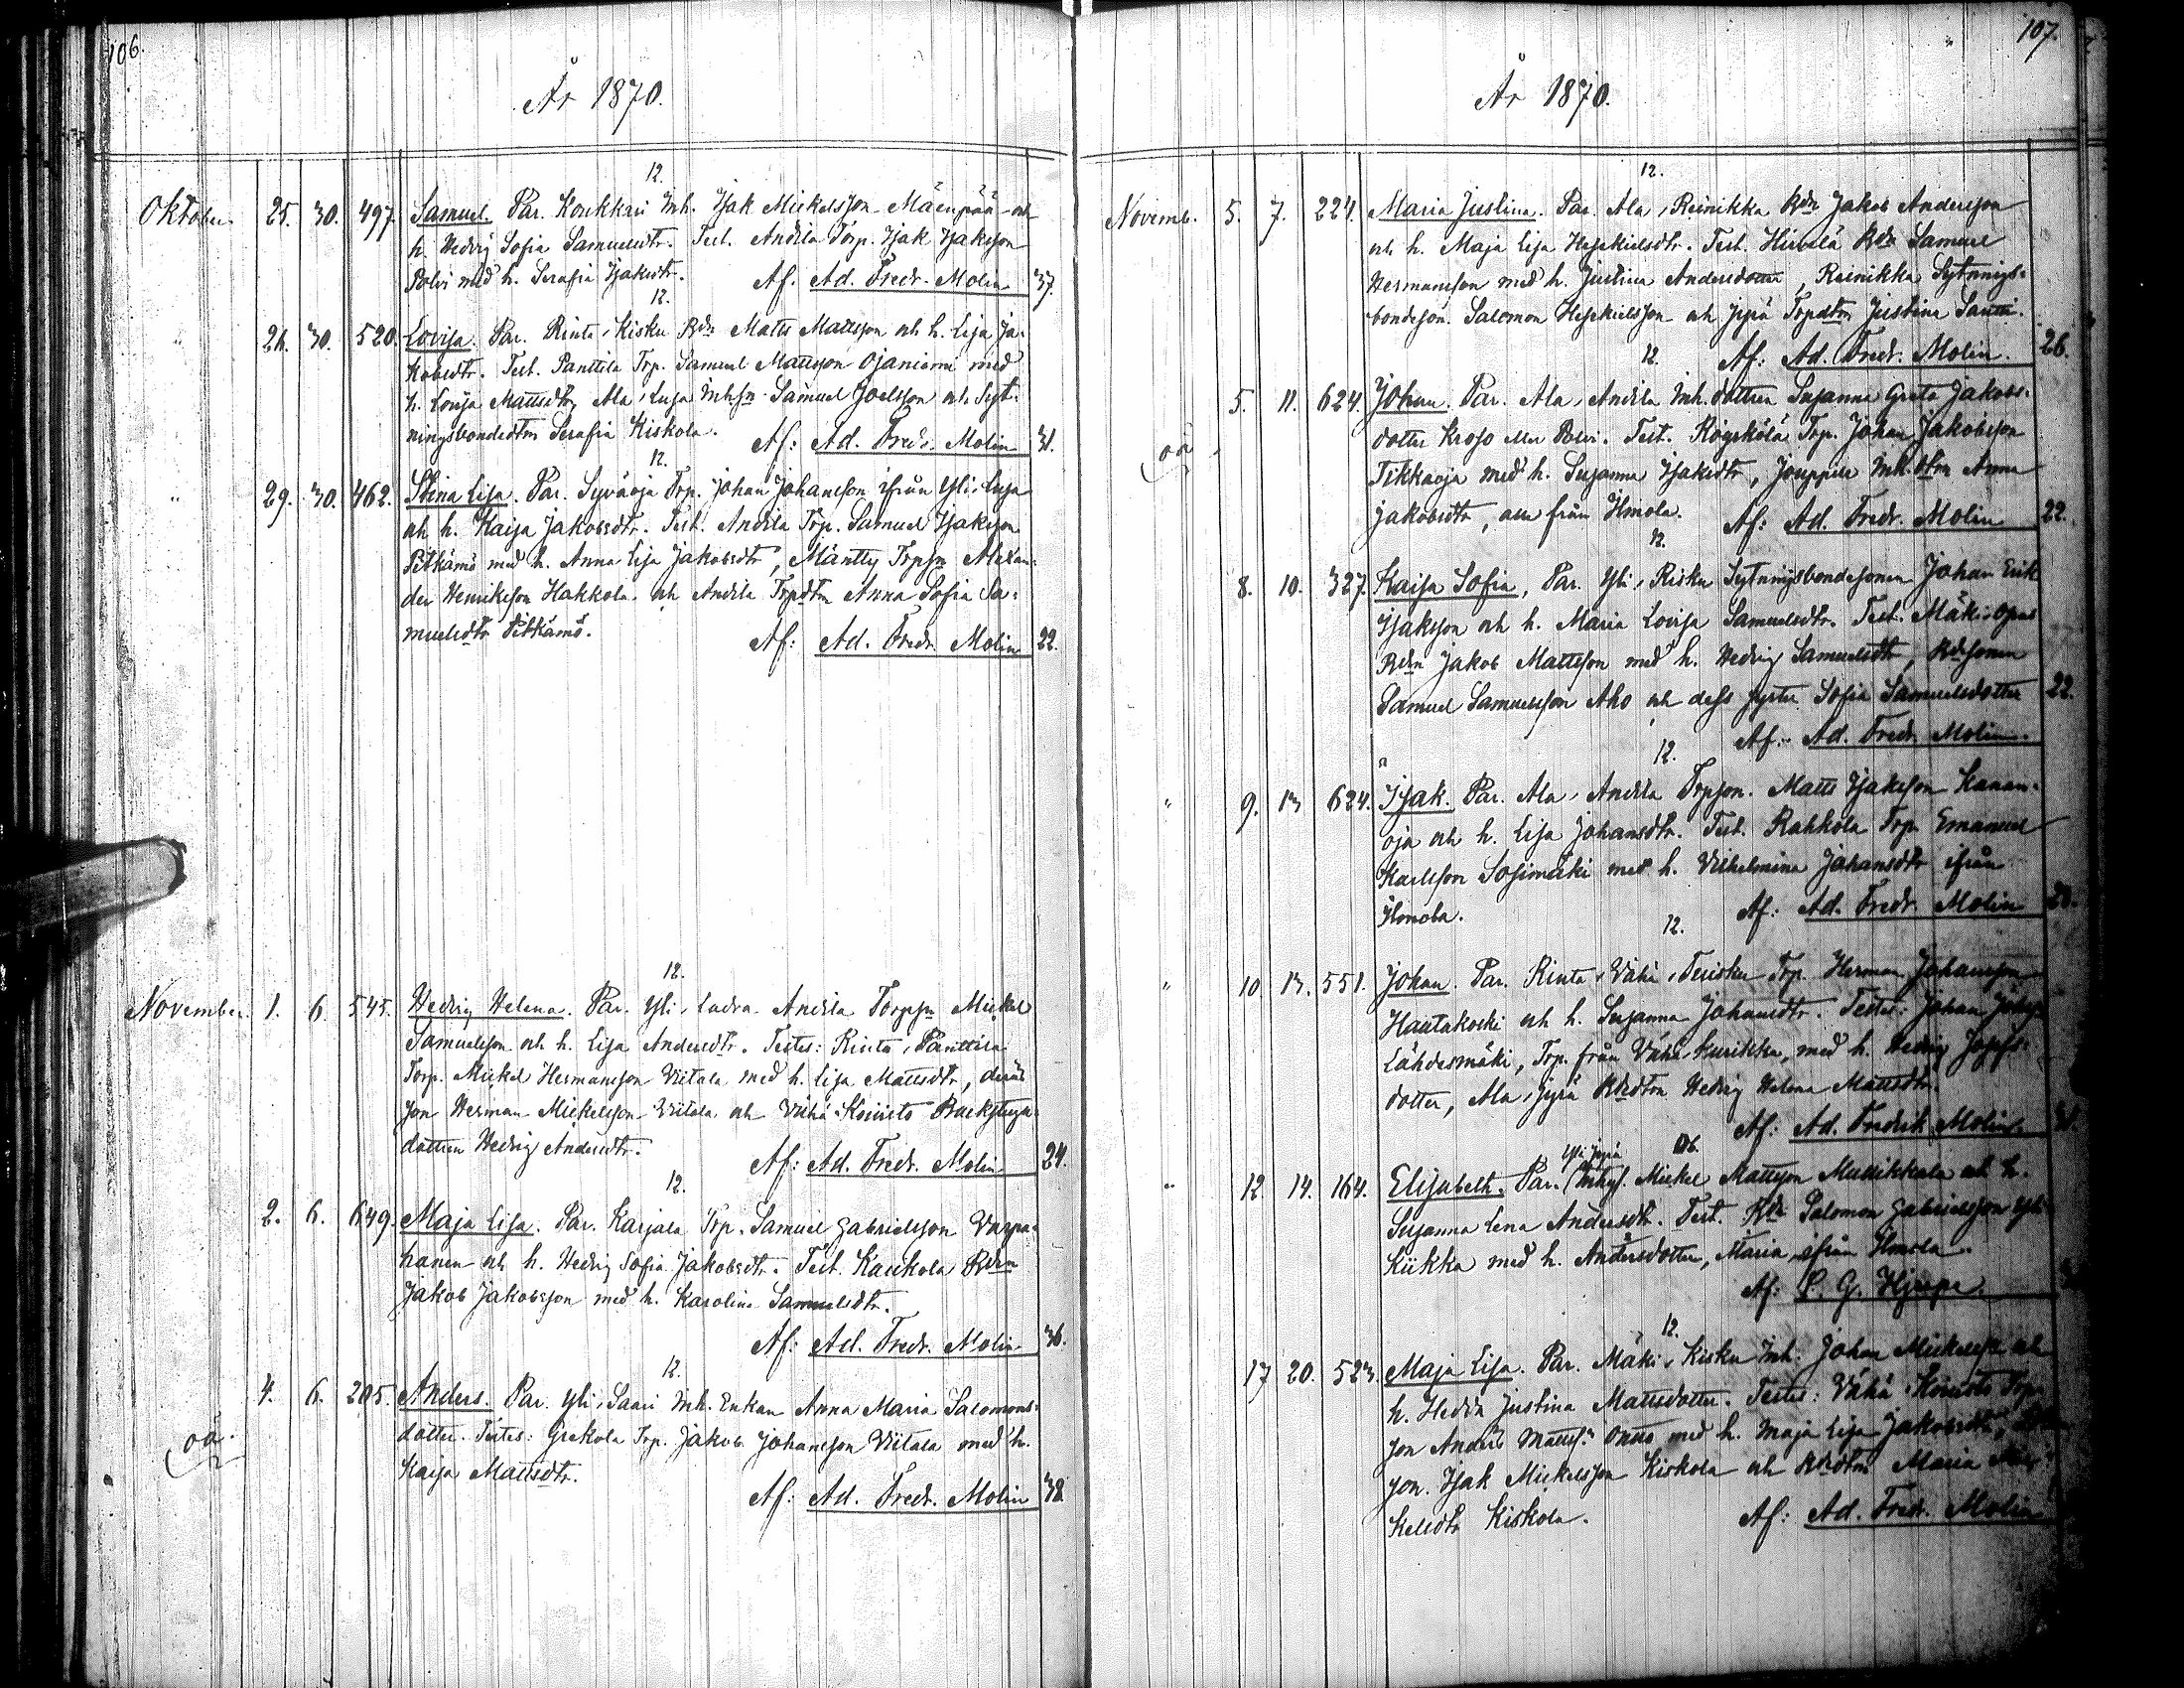 106.
År 1870.
12.
Oktober. 25. 30. 497. Samuel. Par. Koukkari Inh. Isak Mickelsson Mäenpää och
h. Hedvig Sofia Samuelsdtr. Test. Andila Torp. Isak Isaksson
Polvi med h. Serafia Isaksdtr. Af: Ad. Fredr. Molin 37.
12.
" 26. 30. 520. Lovisa. Par. Rinta, Kisku Bdn Matts Mattsson och h. Lisa Ja-
kobsdtr. Test. Panttila Trp. Samuel Mattsson Ojaniemi med
h. Lovisa Mattsdtr, Ala, Luja Inhsn Samuel Joelsson och Syt-
ningsbondedtrn Serafia Kiskola. Af: Ad. Fredr. Molin 31.
12.
" 29. 30. 462. Stina Lisa. Par. Syväoja Trp. Johan Johansson ifrån Yli, Luja
och h. Kaisa Jakobsdtr. Test. Andila Trp. Samuel Isaksson
Pitkämö med h. Anna Lisa Jakobsdtr, Mäntty Trpsn Alexan-
der Henriksson Hakkola och Andila Trpdtrn Anna Sofia Sa-
muelsdtr Pitkämö. Af: Ad. Fredr. Molin 22.
12.
November 1. 6. 545. Hedvig Helena. Par. Yli, Ladra Andila Torpsn Mickel
Samuelsson och h. Lisa Andersdtr. Testes: Rinta, Panttila
Torp. Mickel Hermansson Viitala med h. Lisa Mattsdtr, deras
son Herman Mickelsson Viitala och Vähä-Koivisto Backstugu-
dottren Hedvig Andersdtr. Af: Ad. Fredr. Molin 24.
12.
2. 6. 649. Maja Lisa. Par. Karjala Trp. Samuel Gabrielsson Varpa-
hanen och h. Hedvig Sofia Jakobsdtr. Test. Kaukola Bdn
Jakob Jakobsson med h. Karolina Samuelsdtr.
Af: Ad. Fredr. Molin 36.
12.
oä. 4. 6. 205. Anders. Par. Yli, Saari Inh. Enkan Anna Maria Salomons-
dotter. Testes: Grekola Trp. Jakob Johansson Viitala med h.
Kaisa Mattsdtr.
Af: Ad. Fredr. Molin 38.
107.
År 1870.
12.
Novemb. 5. 7. 224. Maria Justina. Par. Ala, Reinikka Bdn Jakob Andersson
och h. Maja Lisa Heskielsdtr. Test. Hirvelä Bdn Samuel
Hermansson med h. Justina Andersdotter, Reinikka Sytnings-
bondeson. Salomon Heskielsson och Jyrä Trpdtrn Justina Santti.
12. Af: Ad. Fredr. Molin. 26.
oä 5. 11. 624. Johan. Par. Ala, Andila Inh. dottren Susanna Greta Jakobs-
dotter Krojo eller Polvi. Test. Köyskölä Trp. Johan Jakobsson
Tikkaoja med h. Susanna Isaksdtr, Jouppila Inh. dtrn Anna
Jakobsdtr, alla från Ilmola. Af: Ad. Fredr. Molin 22.
12.
8. 10. 327. Kaisa Sofia, Par. Yli, Risku Sytningsbondesonen Johan Erik
Isaksson och h. Maria Lovisa Samuelsdtr. Test. Mäki-Opas
Bdn Jakob Mattsson med h. Hedvig Samuelsdtr, Bdsonen
Samuel Samuelsson Aho och dess syster Sofia Samuelsdotter 22.
12. Af: Ad. Fredr. Molin.
" 9. 13 624. Isak. Par. Ala, Andila Trpson. Matts Isaksson Kanan-
oja och h. Lisa Johansdtr. Test. Rahkola Trp. Emanuel
Karlsson Sosimäki med h. Vilhelmina Johansdtr ifrån
Ilmola. Af: Ad. Fredr. Molin
12.
" 10. 13. 551. Johan. Par. Rinta, Vähä, Teirisku Trp. Herman Johansson
Hautakoski och h. Susanna Johansdtr. Testes: Johan
Lähdesmäki, Trp. från Vähä Kurikka, med h. Hedvig Josefs-
dotter, Ala, Jyrä Bdedtrn Hedvig Helena Mattsdtr.
Af: Ad. Fredrik Molin.
Yli Jyrä
" 12. 14. 164. Elisabeth. Par. Inhys. Mickel Mattsson Mullikkala och h.
Susanna Lena Andersdtr. Test. Bdn Salomon Gabrielsson Yli
Kiikka med h. Andersdotter, Maria ifrån Ilmola.
Af: P. G. Hjerpe.
12.
17 20. 523. Maja Lisa. Par. Mäki, Kisku Inh. Johan Mickelss. och
h. Hedda Justina Mattsdotter. Testes: Vähä-Koivisto Trp.
son Anders Mattss. Onno med h. Maja Lisa Jakobsdtr,
son. Isak Mickelsson Kiskola och Bdedtrn Maria Mic-
kelsdtr Kiskola. Af: Ad. Fredr. Molin